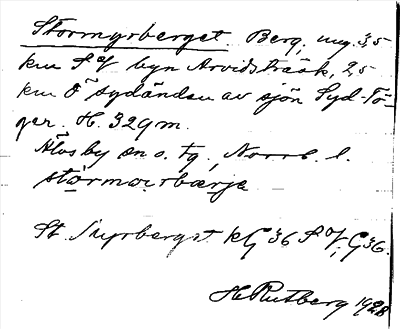 Stormyrberget. Berg, ung. 3,5
km S om byn Arvidsträsk, 2,5
km Ö sydändan av sjön Syd-Tö-
ger. H. 329 m.
Älvsby sn o. tg, Norrb. l.
St. Myrberget kG 36 SV, G 36.
H Rutberg 1928